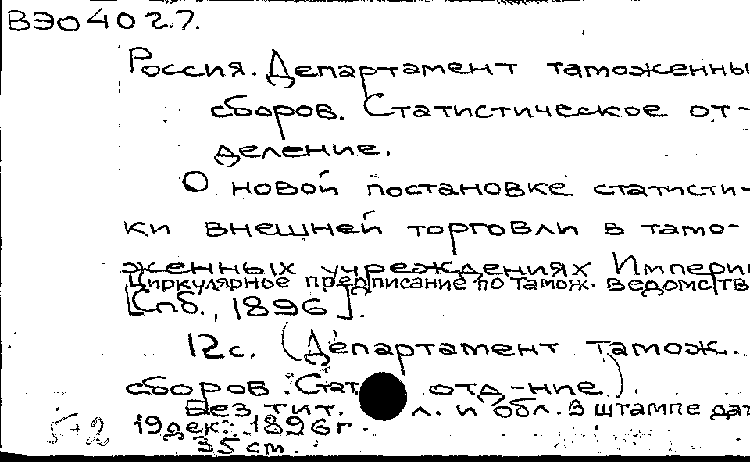 ВЭо4027.
Россия. Департамент таможенны
сборов. Статистическое от-
деление.
О новой постановке статисти-
ки внешней торговли в тамо-
женных учреждениях Импери
Циркулярное предписание по тамож. ведомств
[Спб., 1896].
12с. (Департамент тамож.
сборов. Стат. отд-ние)
Без тит. л. и обл. в штампе дат
19 дек. 1896г.
35 cm.
5-2